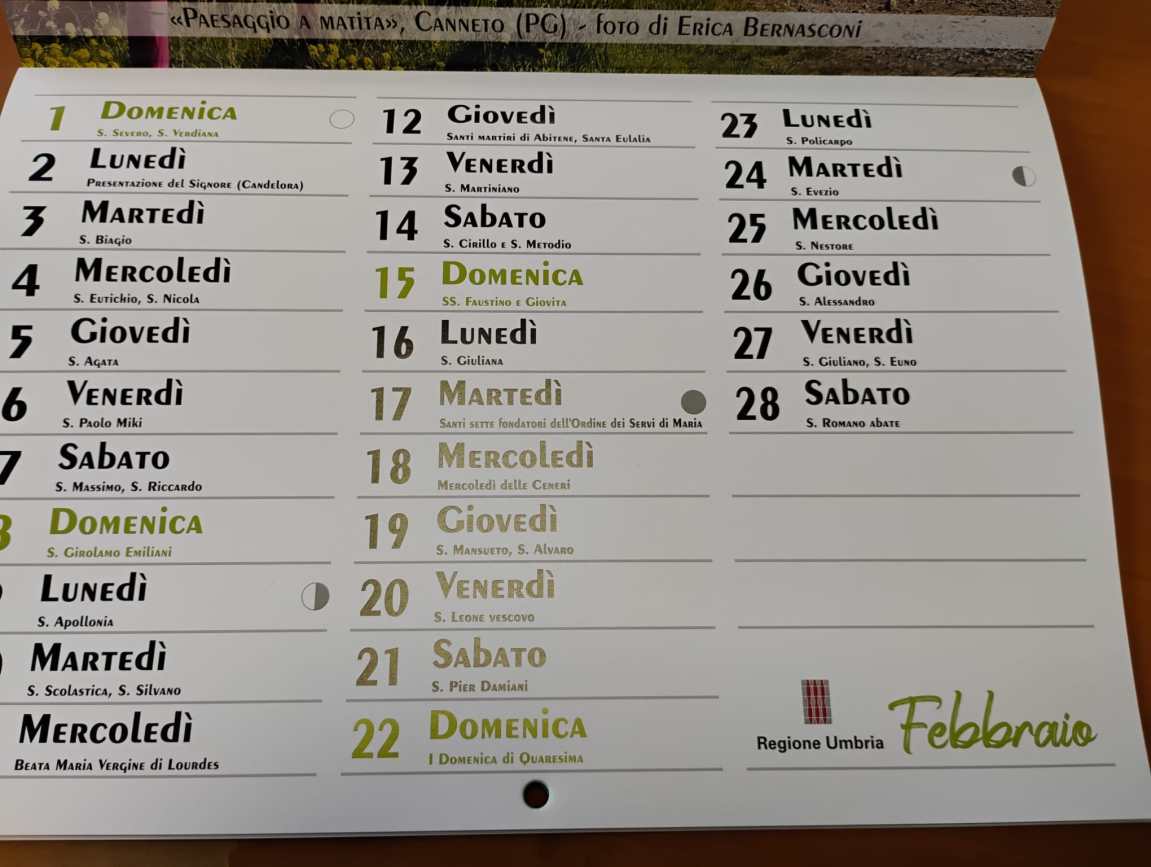 «Paesaggio a matita», Canneto (PG) - foto di Erica Bernasconi
1 Domenica
S. Severo, S. Verdiana
2 Lunedì
Presentazione del Signore (Candelora)
3 Martedì
S. Biagio
4 Mercoledì
S. Eutichio, S. Nicola
5 Giovedì
S. Agata
6 Venerdì
S. Paolo Miki
7 Sabato
S. Massimo, S. Riccardo
8 Domenica
S. Girolamo Emiliani
Lunedì
S. Apollonia
Martedì
S. Scolastica, S. Silvano
Mercoledì
Beata Maria Vergine di Lourdes
12 Giovedì
Santi martiri di Abitene, Santa Eulalia
13 Venerdì
S. Martiniano
14 Sabato
S. Cirillo e S. Metodio
15 Domenica
SS. Faustino e Giovita
16 Lunedì
S. Giuliana
17 Martedì
Santi sette fondatori dell'Ordine dei Servi di Maria
18 Mercoledì
Mercoledì delle Ceneri
19 Giovedì
S. Mansueto, S. Alvaro
20 Venerdì
S. Leone vescovo
21 Sabato
S. Pier Damiani
22 Domenica
I Domenica di Quaresima
23 Lunedì
S. Policarpo
24 Martedì
S. Evezio
25 Mercoledì
S. Nestore
26 Giovedì
S. Alessandro
27 Venerdì
S. Giuliano, S. Euno
28 Sabato
S. Romano abate
Regione Umbria
Febbraio